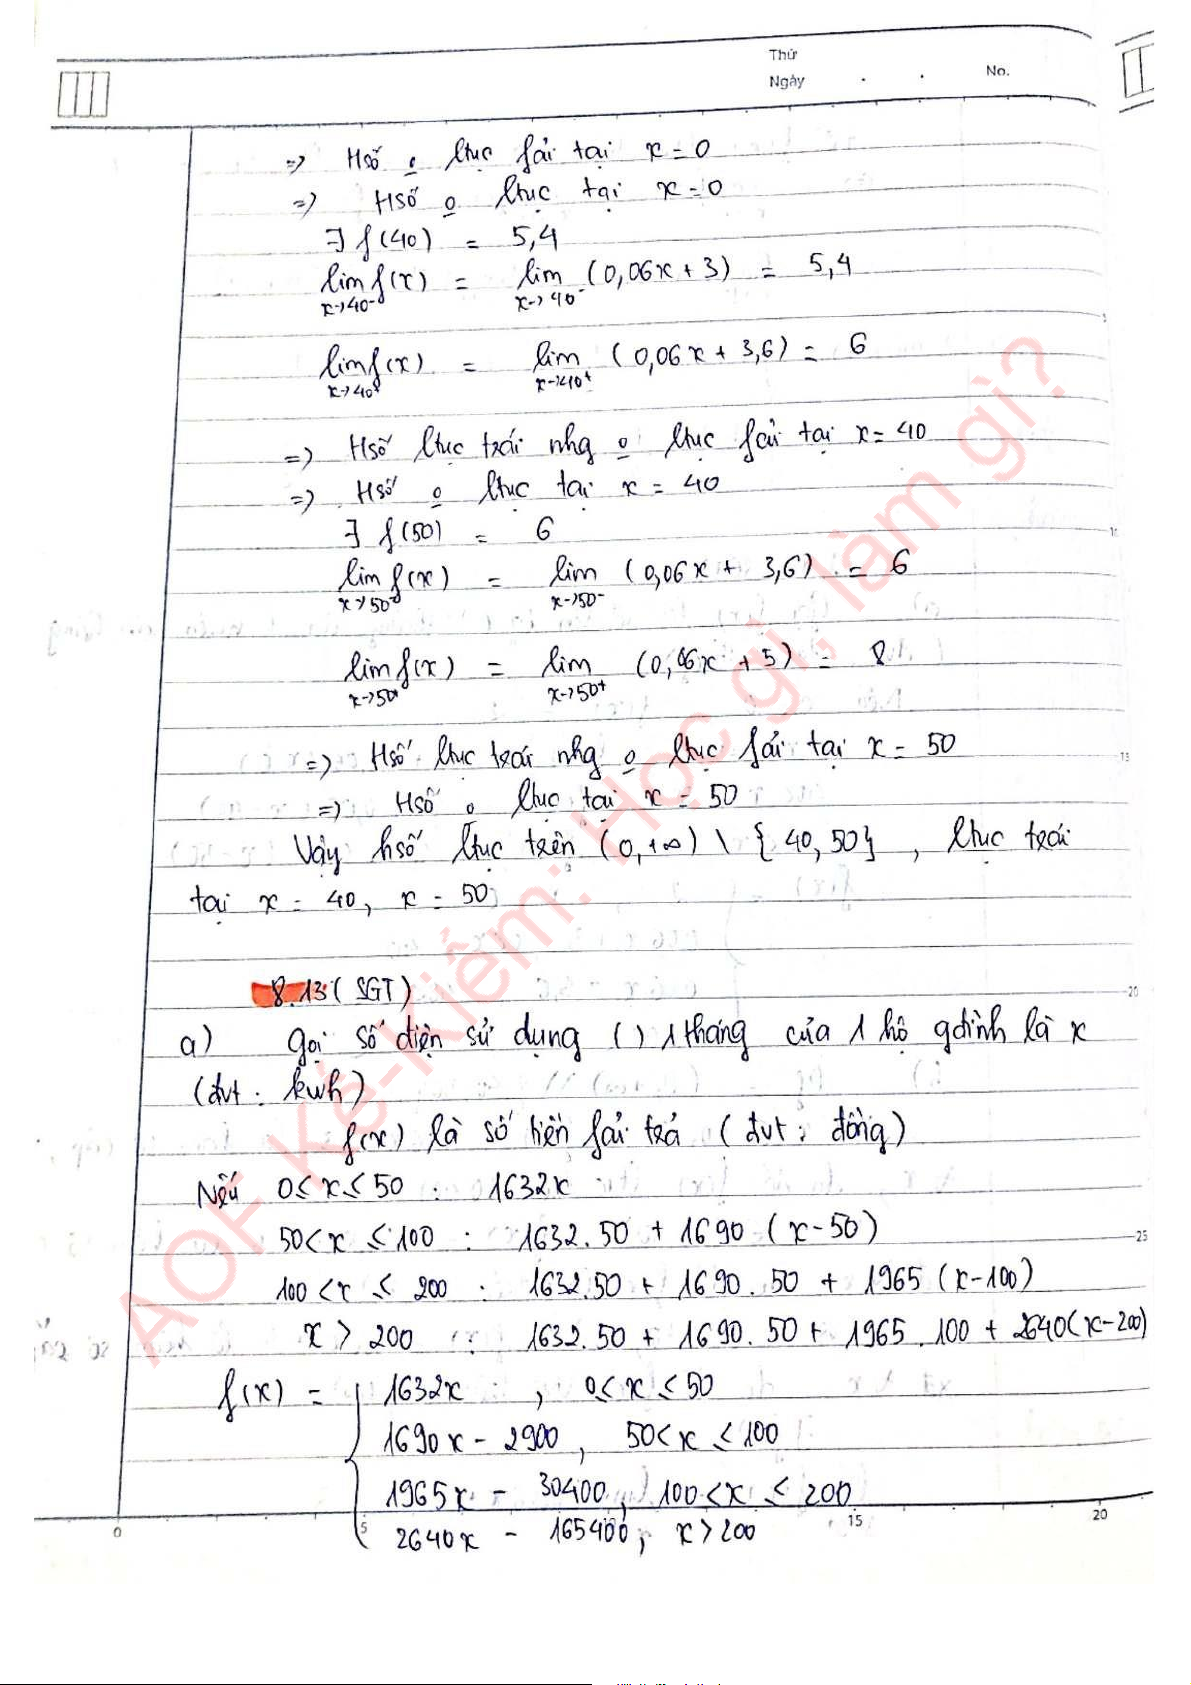 Thứ
Ngày . . No.
=> Hsố o ltục fải tại x = 0
=> Hsố o ltục tại x = 0
∃ f(40) = 5,4
lim f(x) = lim (0,06x + 3) = 5,4
x→40⁻ x→40⁻
lim f(x) = lim (0,06x + 3,6) = 6
x→40⁺ x→40⁺
=> Hsố ltục trái nhg o ltục fải tại x = 40
=> Hsố o ltục tại x = 40
∃ f(50) = 6
lim f(x) = lim (0,06x + 3,6) = 6
x→50⁻ x→50⁻
lim f(x) = lim (0,06x + 5) = 8
x→50⁺ x→50⁺
=> Hsố ltục trái nhg o ltục fải tại x = 50
=> Hsố o ltục tại x = 50
Vậy hsố ltục trên (0,+∞) \ {40, 50} , ltục trái
tại x = 40, x = 50
8.13 (SGT)
a) gọi số điện sử dụng ( ) 1 tháng của 1 hộ gđình là x
(đvt : kwh)
f(x) là số tiền fải trả (đvt : đồng)
Nếu 0 ≤ x ≤ 50 : 1632x
50 < x ≤ 100 : 1632.50 + 1690 (x-50)
100 < x ≤ 200 : 1632.50 + 1690.50 + 1965 (x-100)
x > 200 : 1632.50 + 1690.50 + 1965.100 + 2640(x-200)
f(x) = { 1632x , 0 ≤ x ≤ 50
1690x - 2900 , 50 < x ≤ 100
1965x - 30400 , 100 < x ≤ 200
2640x - 165400 , x > 200
0 5 15 20
5 10 15 20 25
AOF Kế-Kiểm: Học gì, làm gì?